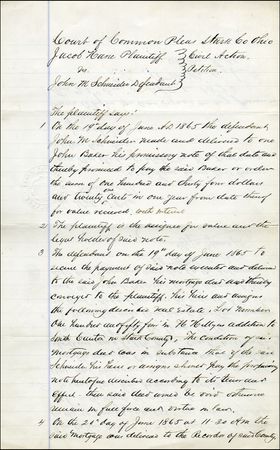 Court of Common Pleas Stark Co Ohio
Jacob Kane Plaintiff } Civil Action.
vs. } Petition.
John M Schneider Defendant }
The plaintiff says:
On the 19th day of June AD 1865 the defendant,
John M. Schneider made and delivered to one
John Baker his promissory note of that date and
thereby promised to pay the said Baker or order
the sum of One hundred and thirty four dollars
and twenty cents in one year from date thereof
for value received with interest
2 The plaintiff is the assignee for value and the
legal holder of said note.
3 The defendant on the 19th day of June 1865 to
secure the payment of said note executed and delivered
to the said John Baker his mortgage deed and thereby
conveyed to the plaintiff his heirs and assigns
the following described Real Estate; Lot Number
One hundred and fifty four in addition to
South Canton in Stark County, The condition of said
Mortgage deed was in Substance that if the said
Schneider his heirs or assigns should pay the promissory
note heretofore described according to its tenor and
effect. then said deed should be void otherwise
remain in full force and virtue in law.
4 On the 21st day of June 1865 at 11.30 AM the
said Mortgage was delivered to the Recorder of said County